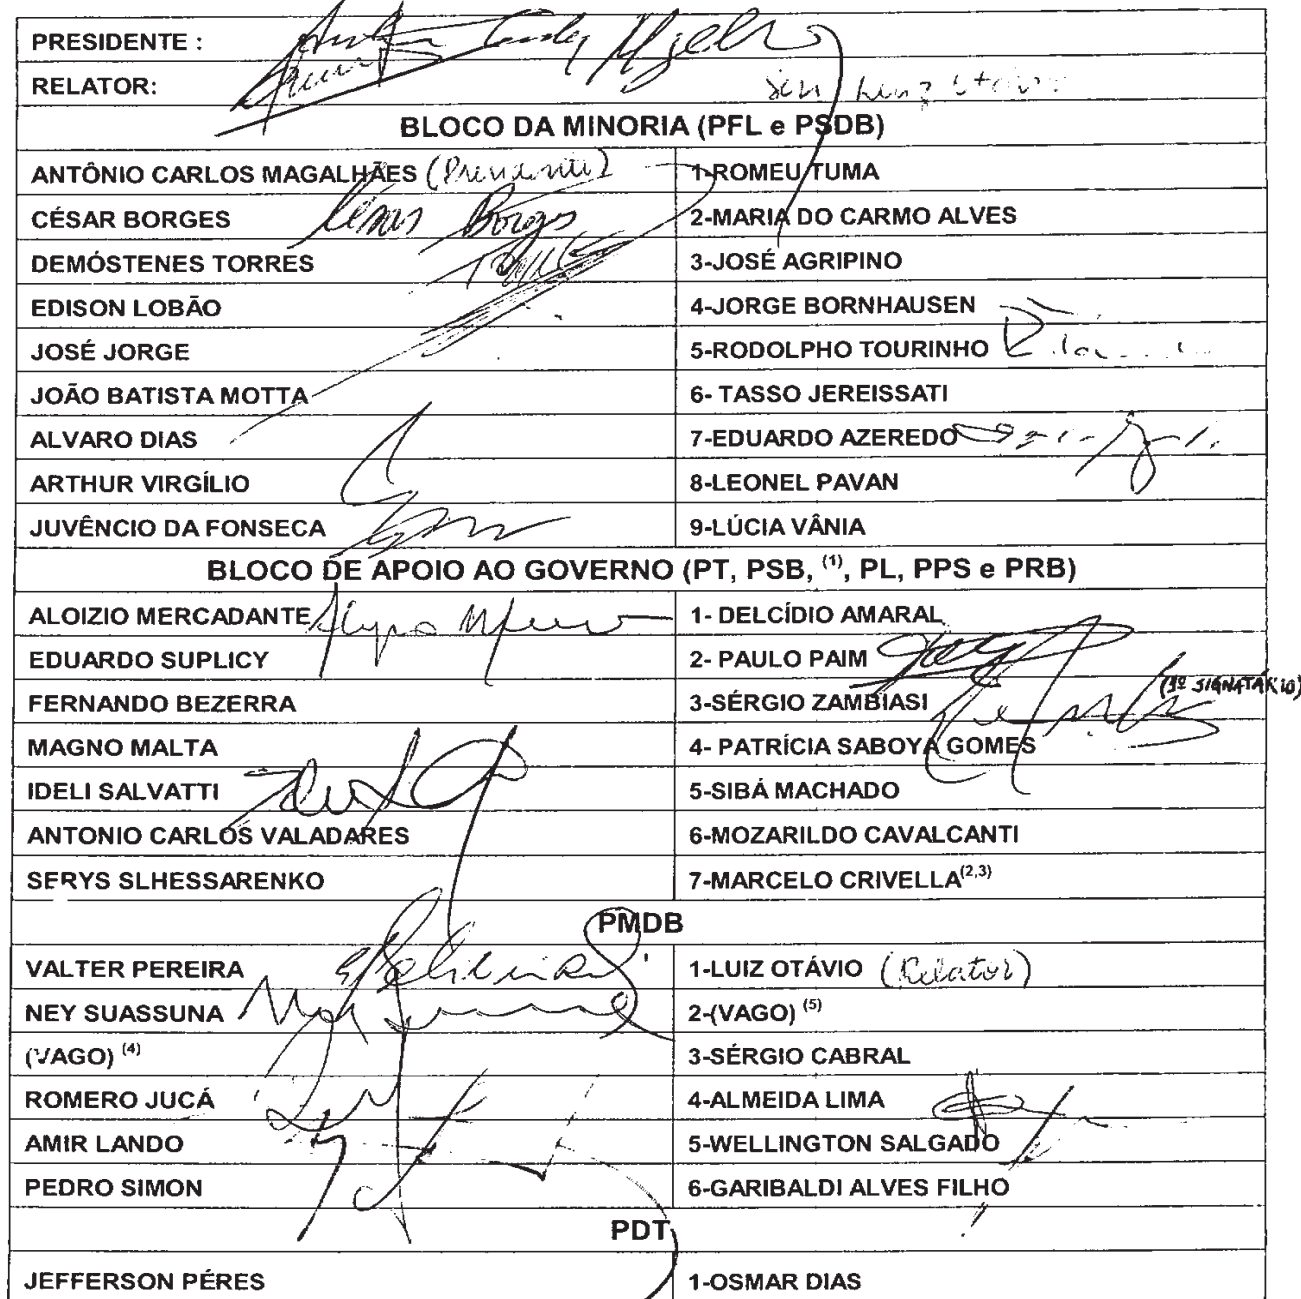 PRESIDENTE :
RELATOR:
BLOCO DA MINORIA (PFL e PSDB)
ANTÔNIO CARLOS MAGALHÃES (Presidente) 1-ROMEU TUMA
CÉSAR BORGES César Borges 2-MARIA DO CARMO ALVES
DEMÓSTENES TORRES 3-JOSÉ AGRIPINO
EDISON LOBÃO 4-JORGE BORNHAUSEN
JOSÉ JORGE 5-RODOLPHO TOURINHO
JOÃO BATISTA MOTTA 6- TASSO JEREISSATI
ALVARO DIAS 7-EDUARDO AZEREDO
ARTHUR VIRGÍLIO 8-LEONEL PAVAN
JUVÊNCIO DA FONSECA 9-LÚCIA VÂNIA
BLOCO DE APOIO AO GOVERNO (PT, PSB, (1), PL, PPS e PRB)
ALOIZIO MERCADANTE 1- DELCÍDIO AMARAL
EDUARDO SUPLICY 2- PAULO PAIM
(1º SIGNATÁRIO)
FERNANDO BEZERRA 3-SÉRGIO ZAMBIASI
MAGNO MALTA 4- PATRÍCIA SABOYA GOMES
IDELI SALVATTI 5-SIBÁ MACHADO
ANTONIO CARLOS VALADARES 6-MOZARILDO CAVALCANTI
SERYS SLHESSARENKO 7-MARCELO CRIVELLA(2,3)
PMDB
VALTER PEREIRA 1-LUIZ OTÁVIO (Relator)
NEY SUASSUNA 2-(VAGO) (5)
(VAGO) (4) 3-SÉRGIO CABRAL
ROMERO JUCÁ 4-ALMEIDA LIMA
AMIR LANDO 5-WELLINGTON SALGADO
PEDRO SIMON 6-GARIBALDI ALVES FILHO
PDT
JEFFERSON PÉRES 1-OSMAR DIAS